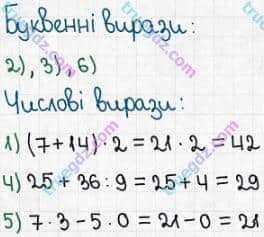 Буквенні вирази:
2), 3), 6)
Числові вирази:
1) (7+14)·2 = 21·2 = 42
4) 25+36:9 = 25+4 = 29
5) 7·3-5·0 = 21-0 = 21